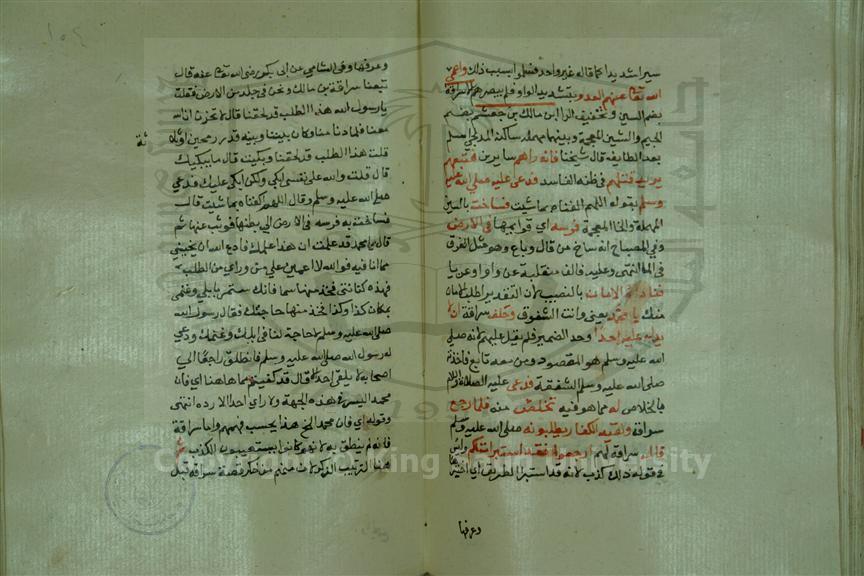 سيرا شديدا كما قاله غير واحد فسلموا بسبب ذلك واعمى
الله تعالى عنهم العدو بتشديد الواو فلم يبصرهم الا سراقة
بضم السين وتخفيف الرا ابن مالك بن جعشم بضم
الجيم والشين المعجمة وبينهما مهملة ساكنة المدلجي اسلم
بعد الطايف قال شيخنا فانه راهم سايرين فتبعهم
يريد قتلهم في ظنه الفاسد فدعى عليه صلى الله عليه
وسلم بقوله اللهم اكفناه بما شيت فساخت بالسين
المهملة والخا المعجمة فرسه اي قوايمها في الارض
وفي المصباح انه ساخ من قال وباع وهو مثل الغرق
في الما انتهى وعليه فالف منقلبة عن واو او عن يا
فناداه الامان بالنصب لان التقدير اطلب الامان
منك يا محمد يعني وانت الشفوق وحلف سراقة ان لا
يدل عليه احدا وحد الضمير فلم يقل عليهم لانه صلى
الله عليه وسلم هو المقصود ومن معه تابع فاخذته
صلى الله عليه وسلم الشفقة فدعى عليه الصلاة والسلام
بالخلاص له مما هو فيه تخلص منه فلما رجع
سراقة ولقيه الكفار يطلبونه صلى الله عليه وسلم
قال سراقة لهم ارجعوا فقد استبرات لكم
في قوله ذلك كذب لانه قد استبرا الطريق اي اختبرها
وعرفها
وعرفها وفي الشامي عن ابي بكر رضي الله تعالى عنه قال
تبعنا سراقة بن مالك ونحن في جلد من الارض فقلت
يا رسول الله هذا الطلب قد لحقنا قال لا تحزن ان الله
معنا فلما دنا منا وكان بيننا وبينه قدر رمحين او ثلاثة
قلت هذا الطلب قد لحقنا وبكيت قال ما يبكيك
قال قلت والله على نفسي ابكي ولكن ابكي عليك فدعى
صلى الله عليه وسلم وقال اللهم اكفناه بما شئت قال
فساخت به فرسه في الارض الى بطنها فوثب عنها ثم
قال يا محمد قد علمت ان هذا عملك فادع الله ان ينجيني
مما انا فيه فوالله لا اعمين على من وراي من الطلب
فهذه كنانتي فخذ منها سهما فانك ستمر بابلي وغنمي
بمكان كذا وكذا فخذ منها حاجتك فقال رسول الله
صلى الله عليه وسلم لا حاجة لنا في ابلك وغنمك ودعى
له رسول الله صلى الله عليه وسلم فانطلق راجعا الى
اصحابه لا يلقى احدا الا قال قد كفيتم ما هاهنا اي فان
محمدا ليس في هذه الجهة ولا راي احدا الا رده انتهى
وقوله اي فان محمد الخ هذا بحسب فهمهم واما سراقة
فانه لم ينطق به لانهم كانوا يستعيبون الكذب ثم
هذا الترتيب الذي ذكر سراقة قبل
١٠٤
Copyright © King University